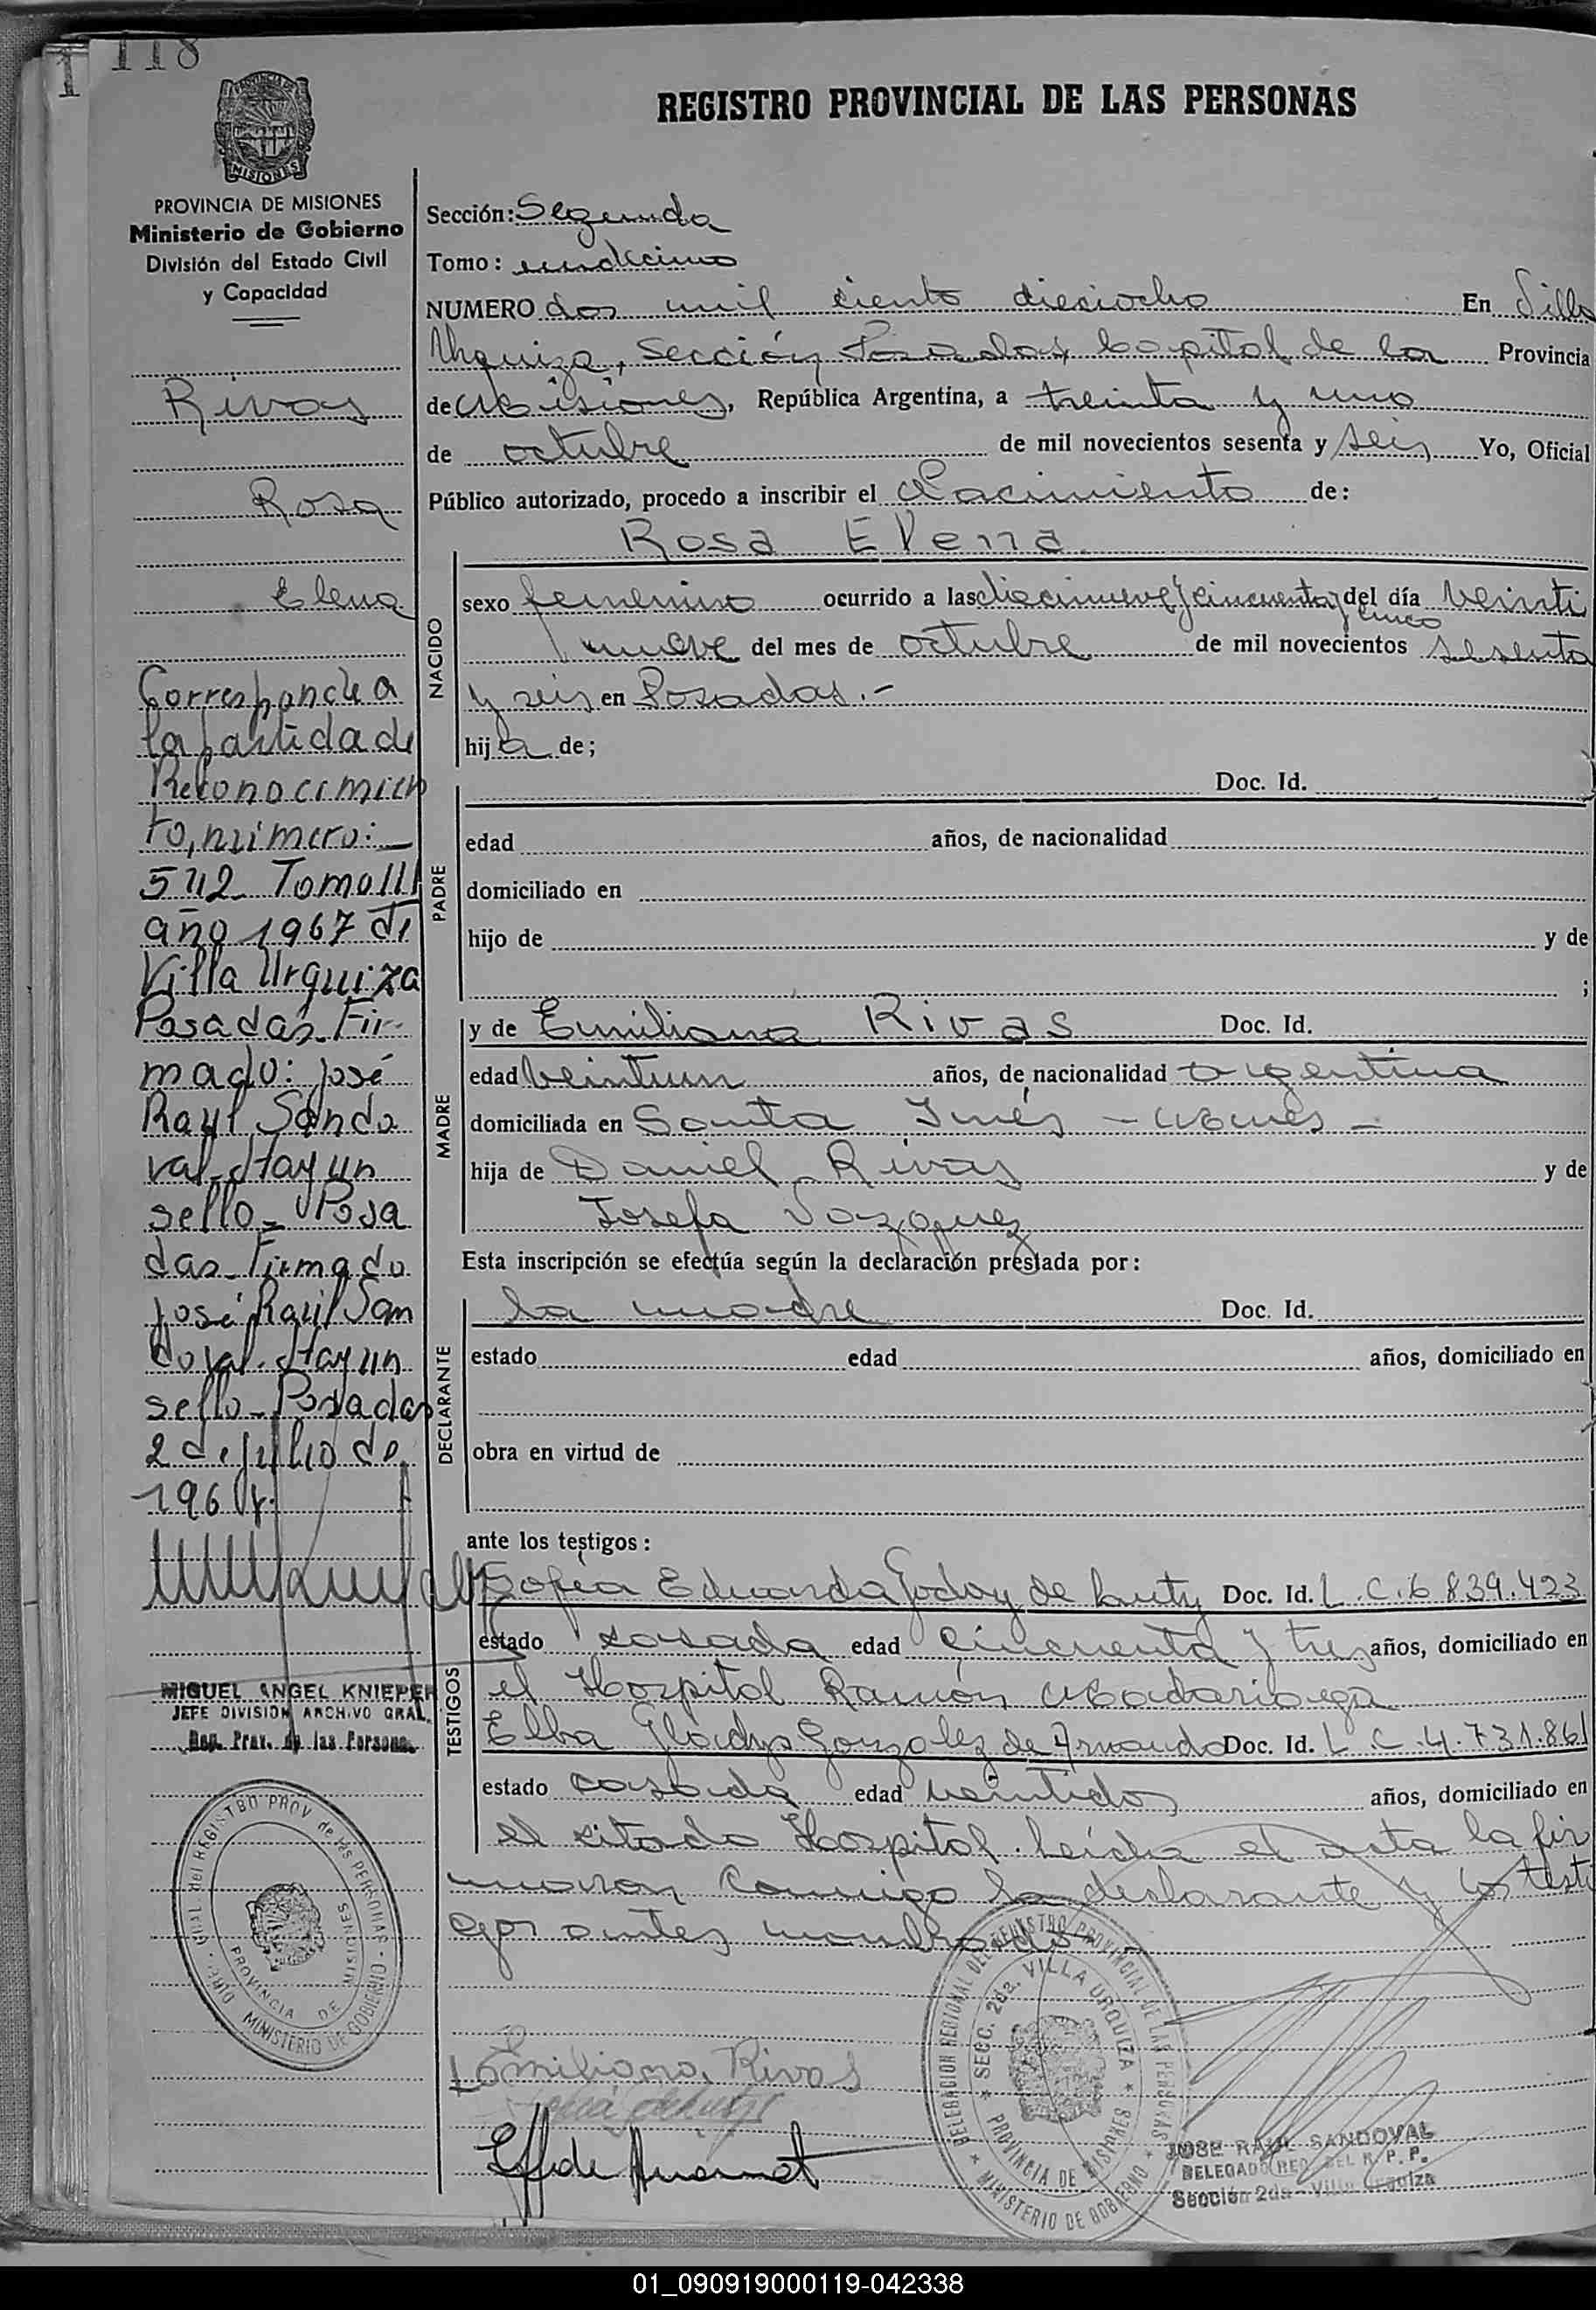 118
1
MISIONES
REGISTRO PROVINCIAL DE LAS PERSONAS
PROVINCIA DE MISIONES
Ministerio de Gobierno
División del Estado Civil
y Capacidad
Rivas
Rosa
Elena
Corresponde a
la partida de
Reconocimien
to, número:
542 Tomo III
año 1967 de
Villa Urquiza
Posadas. Fir-
mado: José
Raul Sando
val. Hay un
sello - Posa
das - Firmado
José Raúl San
doval. Hay un
sello - Posadas
2 de julio de
196
MIGUEL ANGEL KNIEPER
JEFE DIVISION ARCHIVO GRAL.
Reg. Prov. de las Personas
GRAL. del REGISTRO PROV. de las PERSONAS - MINISTERIO DE GOBIERNO
PROVINCIA DE MISIONES
Sección: Segunda
Tomo: undécimo
NUMERO dos mil ciento dieciocho En Villa
Urquiza, Sección Posadas, Capital de la Provincia
de Misiones, República Argentina, a treinta y uno
de octubre de mil novecientos sesenta y seis Yo, Oficial
Público autorizado, procedo a inscribir el Nacimiento de:
Rosa Elena
NACIDO
sexo femenino ocurrido a las diecinueve y cincuenta y cinco del día veinti
nueve del mes de octubre de mil novecientos sesenta
y seis en Posadas.-
hija de;
PADRE
Doc. Id.
edad años, de nacionalidad
domiciliado en
hijo de y de
;
MADRE
y de Emiliana Rivas Doc. Id.
edad veintiun años, de nacionalidad argentina
domiciliada en Santa Inés - Mnes -
hija de Daniel Rivas y de
Josefa Vazquez
Esta inscripción se efectúa según la declaración prestada por:
DECLARANTE
la madre Doc. Id.
estado edad años, domiciliado en
obra en virtud de
ante los testigos:
TESTIGOS
Sofía Eduarda Godoy de Luty Doc. Id. L.C.6.839.423
estado casada edad cincuenta y tres años, domiciliado en
el Hospital Ramón Madariaga
Elba Gladys Gonzalez de Doc. Id. L.C.4.731.861
estado casada edad veintidos años, domiciliado en
el citado Hospital. Leída el acta la fir
maron conmigo la declarante y los testi
gos antes nombrados
Emiliana Rivas
DELEGACION REGIONAL DEL REGISTRO PROVINCIAL DE LAS PERSONAS * MINISTERIO DE GOBIERNO *
SECC. 2da. VILLA URQUIZA * PROVINCIA DE MISIONES *
JOSE RAUL SANDOVAL
DELEGADO REG. DEL R. P. P.
Sección 2da - Villa Urquiza
01_090919000119-042338